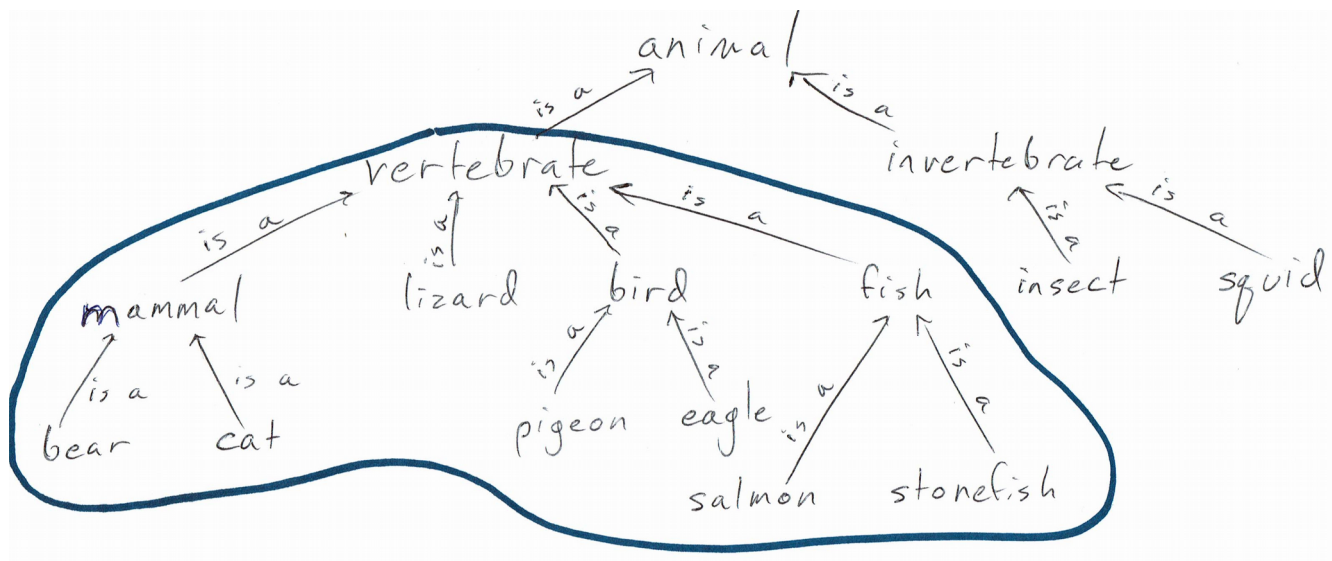 animal
is a
is a
vertebrate
invertebrate
is a
is a
is a
is a
is a
is a
mammal
lizard
bird
fish
insect
squid
is a
is a
is a
is a
is a
is a
bear
cat
pigeon
eagle
salmon
stonefish